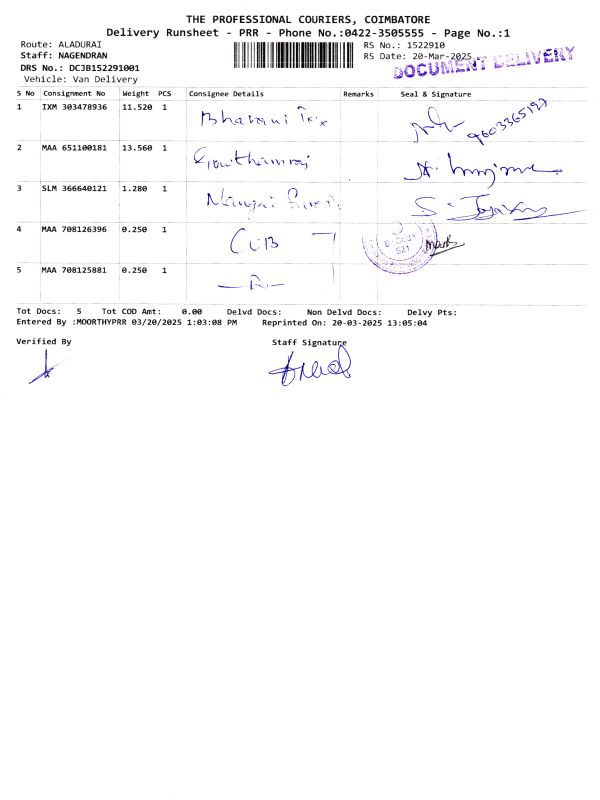 THE PROFESSIONAL COURIERS, COIMBATORE
Delivery Runsheet - PRR - Phone No.:0422-3505555 - Page No.:1
Route: ALADURAI
Staff: NAGENDRAN
DRS No.: DCJB152291001
Vehicle: Van Delivery
RS No.: 1522910
RS Date: 20-Mar-2025
DOCUMENT DELIVERY
S No Consignment No Weight PCS Consignee Details Remarks Seal & Signature
1 IXM 303478936 11.520 1 Bharani Tex
2 MAA 651100181 13.560 1 Gowthamraj
3 SLM 366640121 1.280 1
4 MAA 708126396 0.250 1 CUB
5 MAA 708125881 0.250 1
Tot Docs: 5 Tot COD Amt: 0.00 Delvd Docs: Non Delvd Docs: Delvy Pts:
Entered By :MOORTHYPRR 03/20/2025 1:03:08 PM Reprinted On: 20-03-2025 13:05:04
Verified By Staff Signature